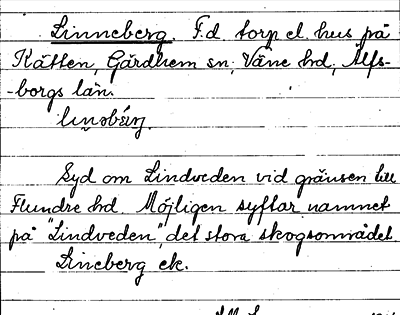 Linneberg. F.d torp el. hus på
Kåtten, Gärdhem sn, Väne hd, Älfs-
-borgs län.
Syd om Lindveden vid gränsen till
Flundre hd. Möjligen syftar namnet
på "Lindveden", det stora skogsområdet.
Lineberg ek.